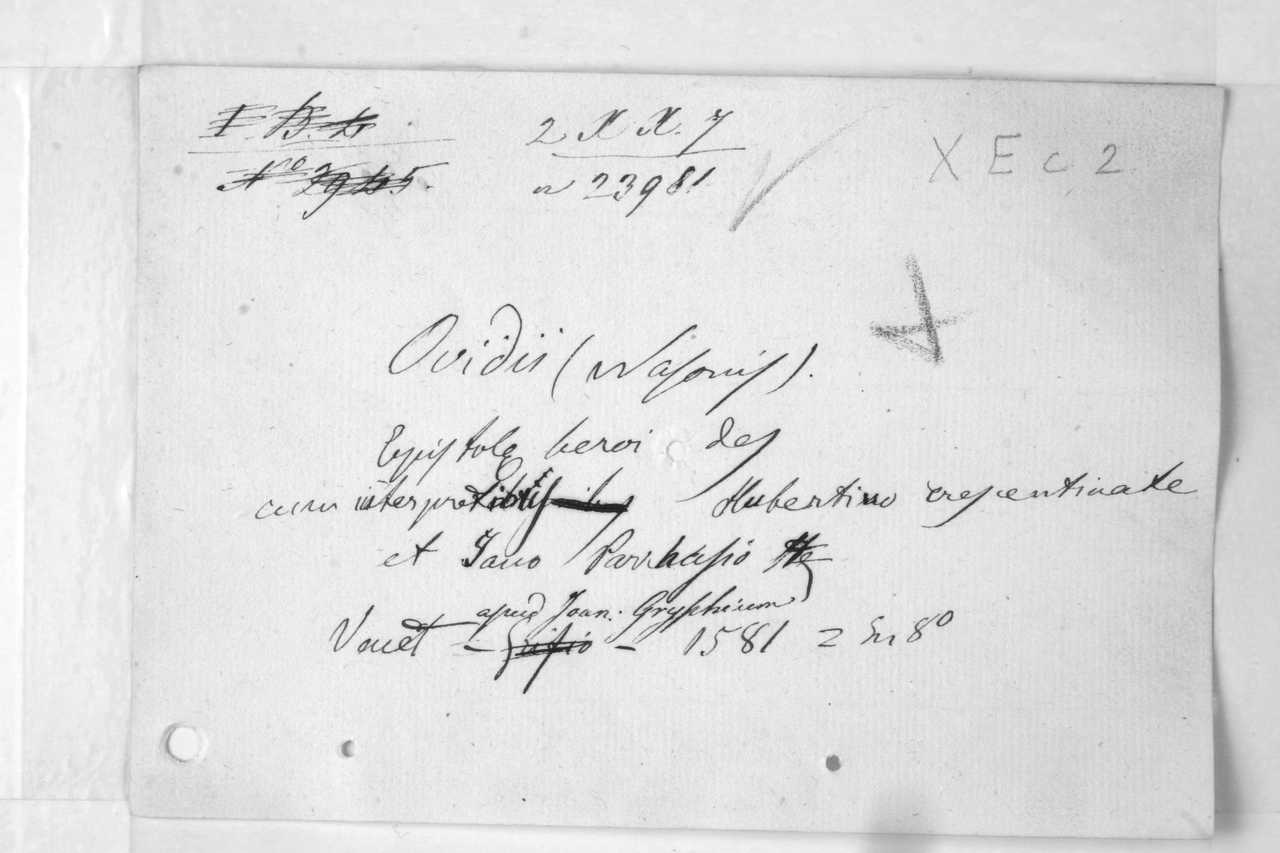 2 X X. 7
n 23981
X E c 2
Ovidii (Nasonis).
Epistole heroi des
cum interpretibus Hubertino crescentinate
et Jano Parrhasio
apud Joan. Gryphium
Venet - - 1581 = In 8º